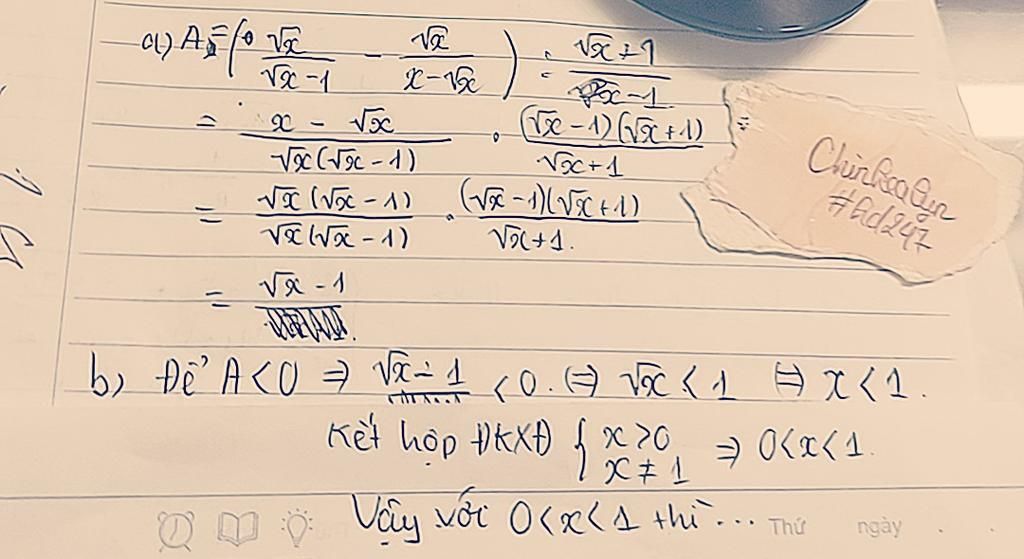 a) A = ( √x / (√x - 1) - √x / (x - √x) ) : (√x + 1) / (x - 1)
= (x - √x) / (√x(√x - 1)) . (√x - 1)(√x + 1) / (√x + 1) =
= √x(√x - 1) / (√x(√x - 1)) . (√x - 1)(√x + 1) / (√x + 1).
= √x - 1
b) Để A < 0 ⇒ √x - 1 < 0. ⇔ √x < 1 ⇔ x < 1.
Kết hợp ĐKXĐ { x > 0
x ≠ 1 ⇒ 0 < x < 1.
Vậy với 0 < x < 1 thì...
Thứ ngày
#Ad247